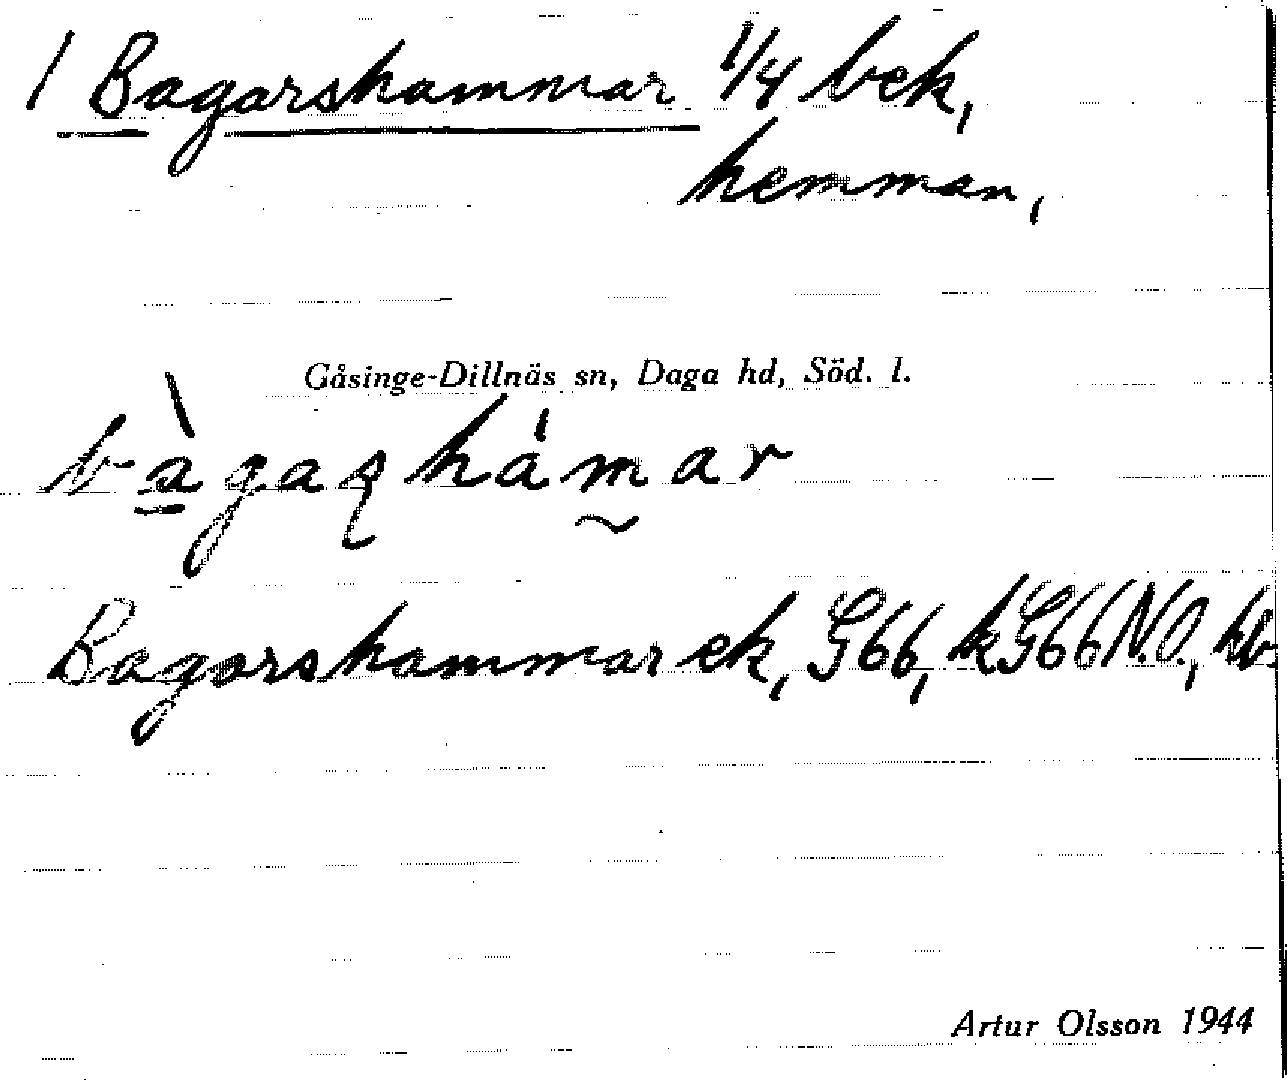 1 Bagarshammar 1/4 bek,
hemman,
Gåsinge-Dillnäs sn, Daga hd, Söd. l.
Bagarshammar ek, G66, kG66N.O.,
Artur Olsson 1944